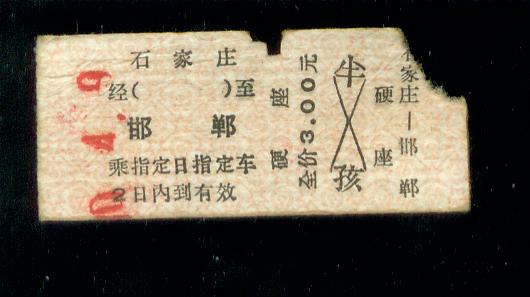 石家庄
经( )至
邯郸
乘指定日指定车
2日内到有效
硬座
全价3.00元
半
孩
硬座
家庄—邯郸
4.9